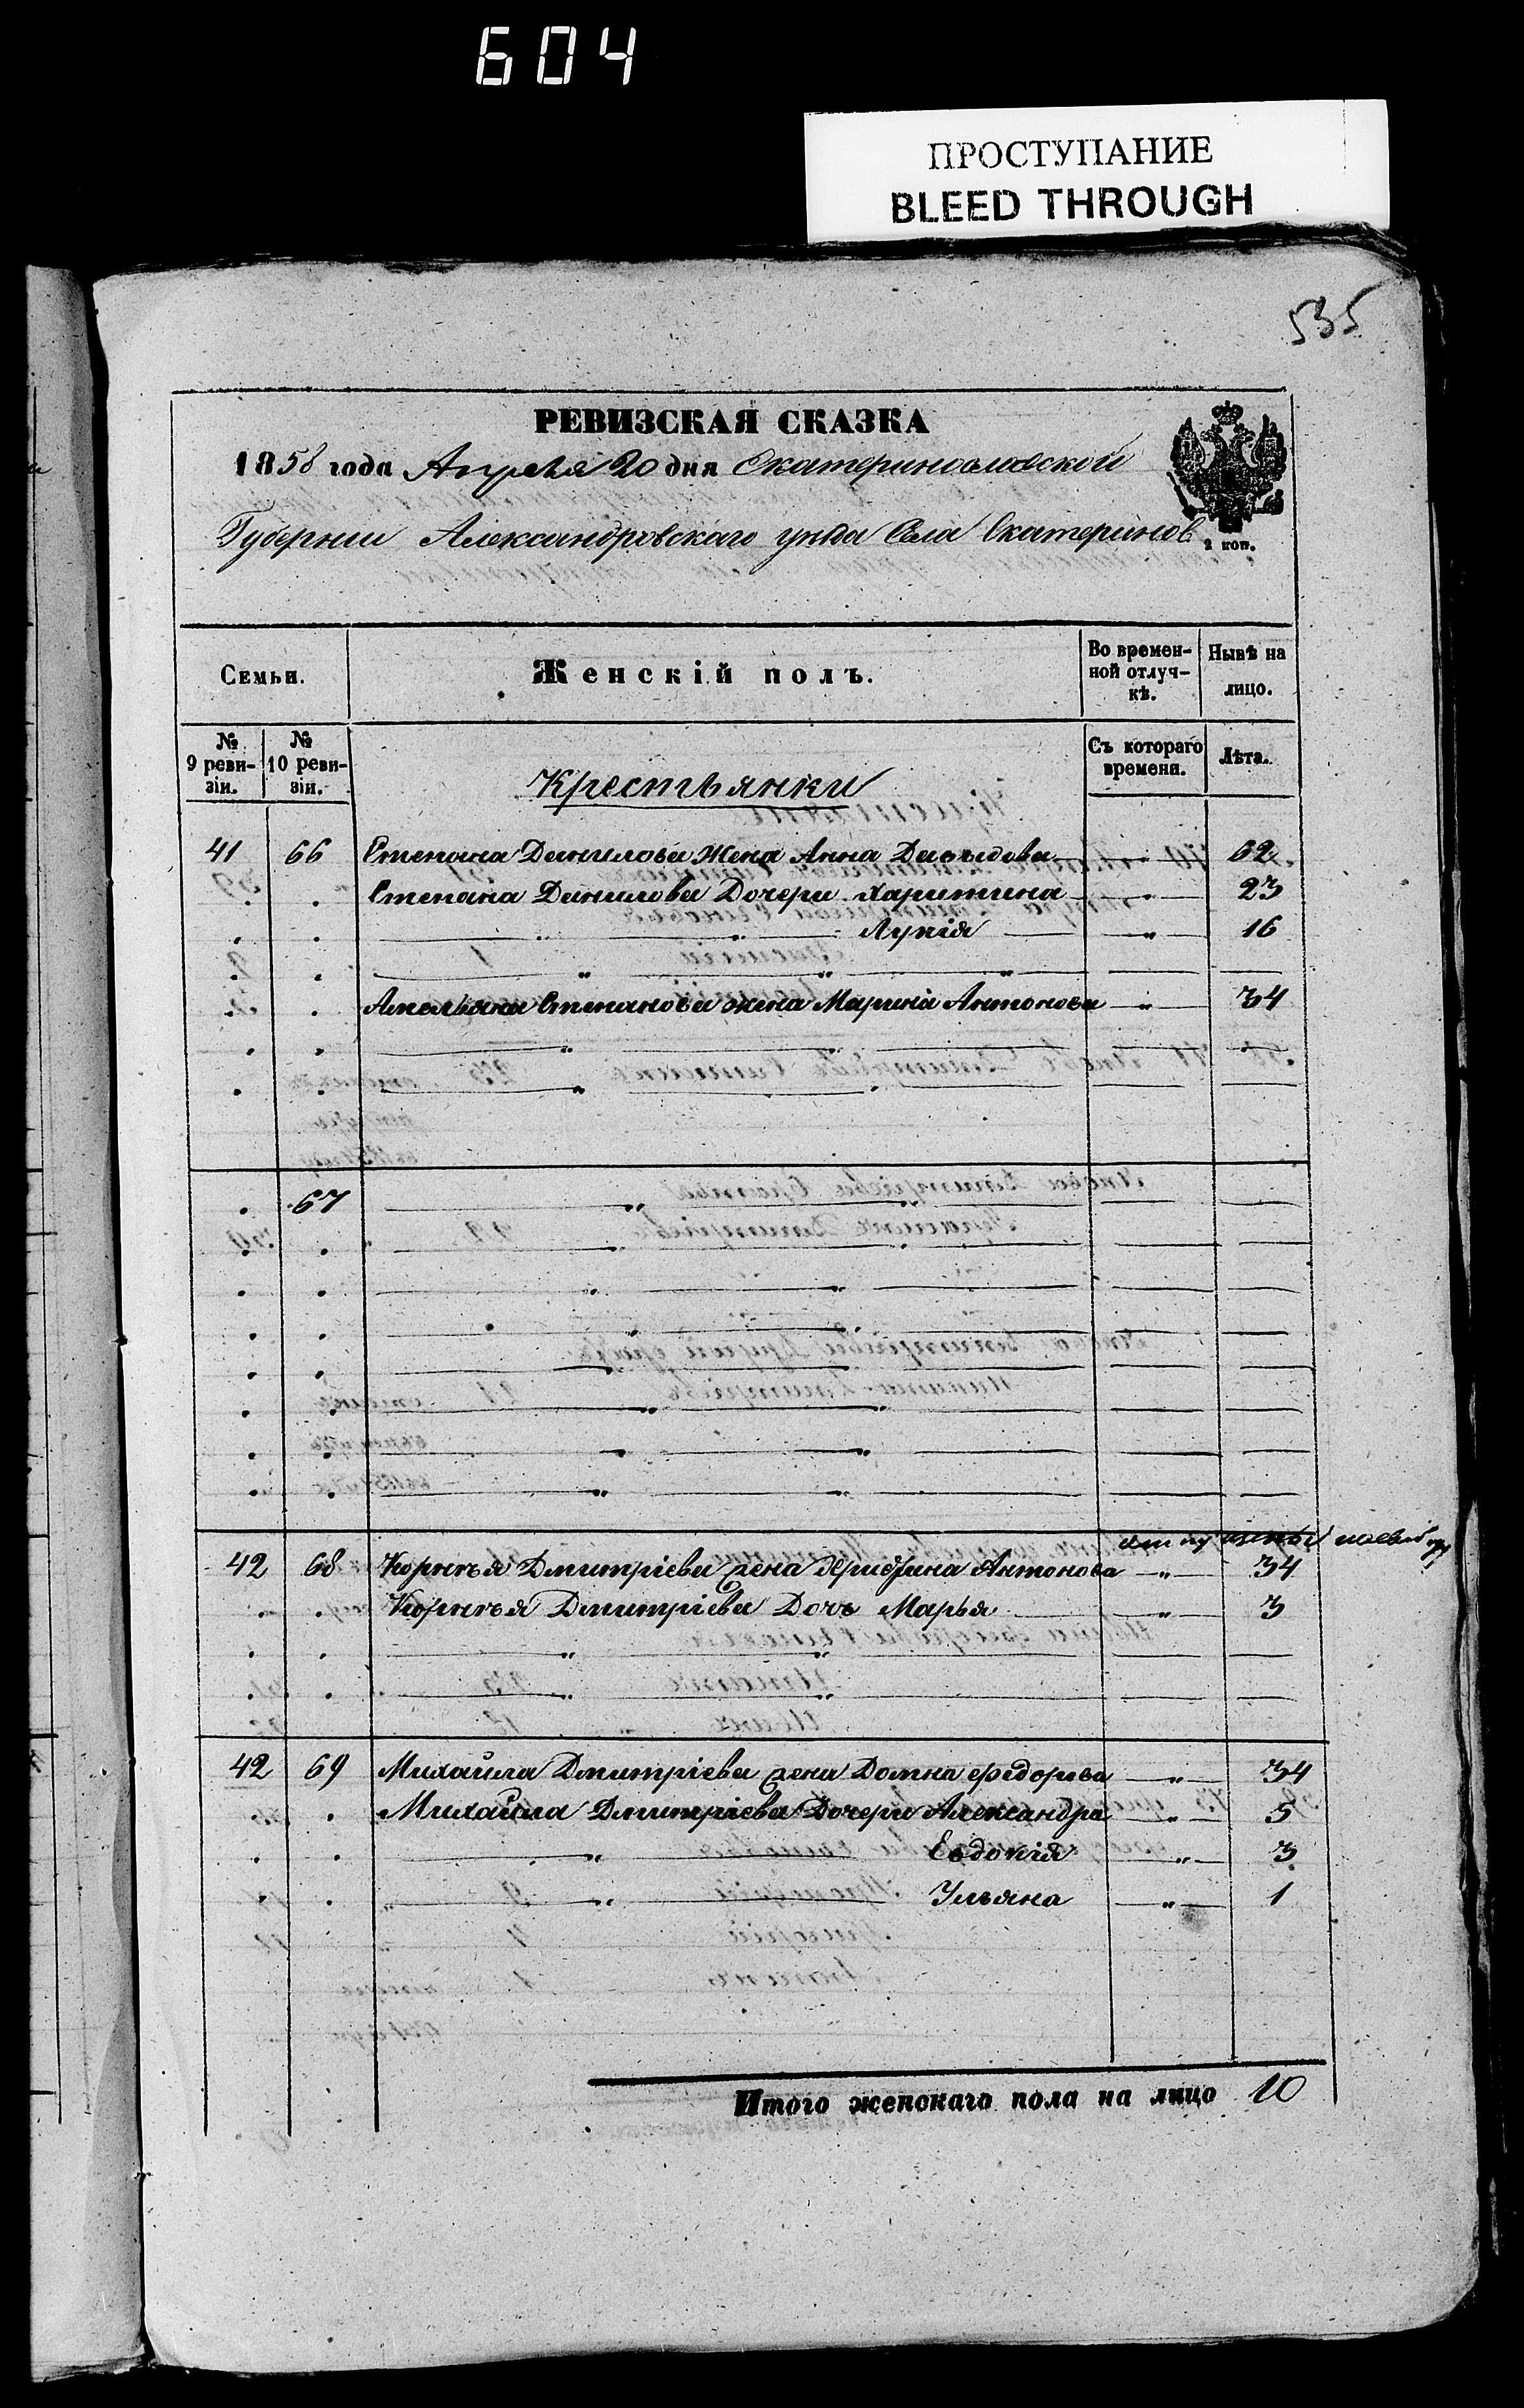 604
ПРОСТУПАНИЕ
BLEED THROUGH
535
РЕВИЗСКАЯ СКАЗКА
1858 года Апреля 20 дня Екатеринославской
Губернии Александровского уезда Села Екатеринов
2 коп.
Семьи. Женскій полъ. Во времен- Нынѣ на
ной отлуч- лицо.
кѣ.
№ № Съ котораго Лѣта.
9 реви- 10 реви- времени.
зіи. зіи.
Крестьянки
41 66 Степана Данилова Жена Анна Давыдова " 62
Степана Данилова Дочери Харитина " 23
" " Лукія " 16
" " "
Амельяна Степанова жена Марина Антонова " 34
" "
" "
67 " "
" "
" "
" "
" "
" "
" "
" "
42 68 Корнѣя Дмитріева жена Антонова " 34
Корнѣя Дмитріева Дочь Марья " 3
" "
" "
42 69 Михайла Дмитріева жена Домна Федорова " 34
Михайла Дмитріева Дочери Александра " 5
" Евдокія " 3
" Ульяна " 1
Итого женскаго пола на лицо 10